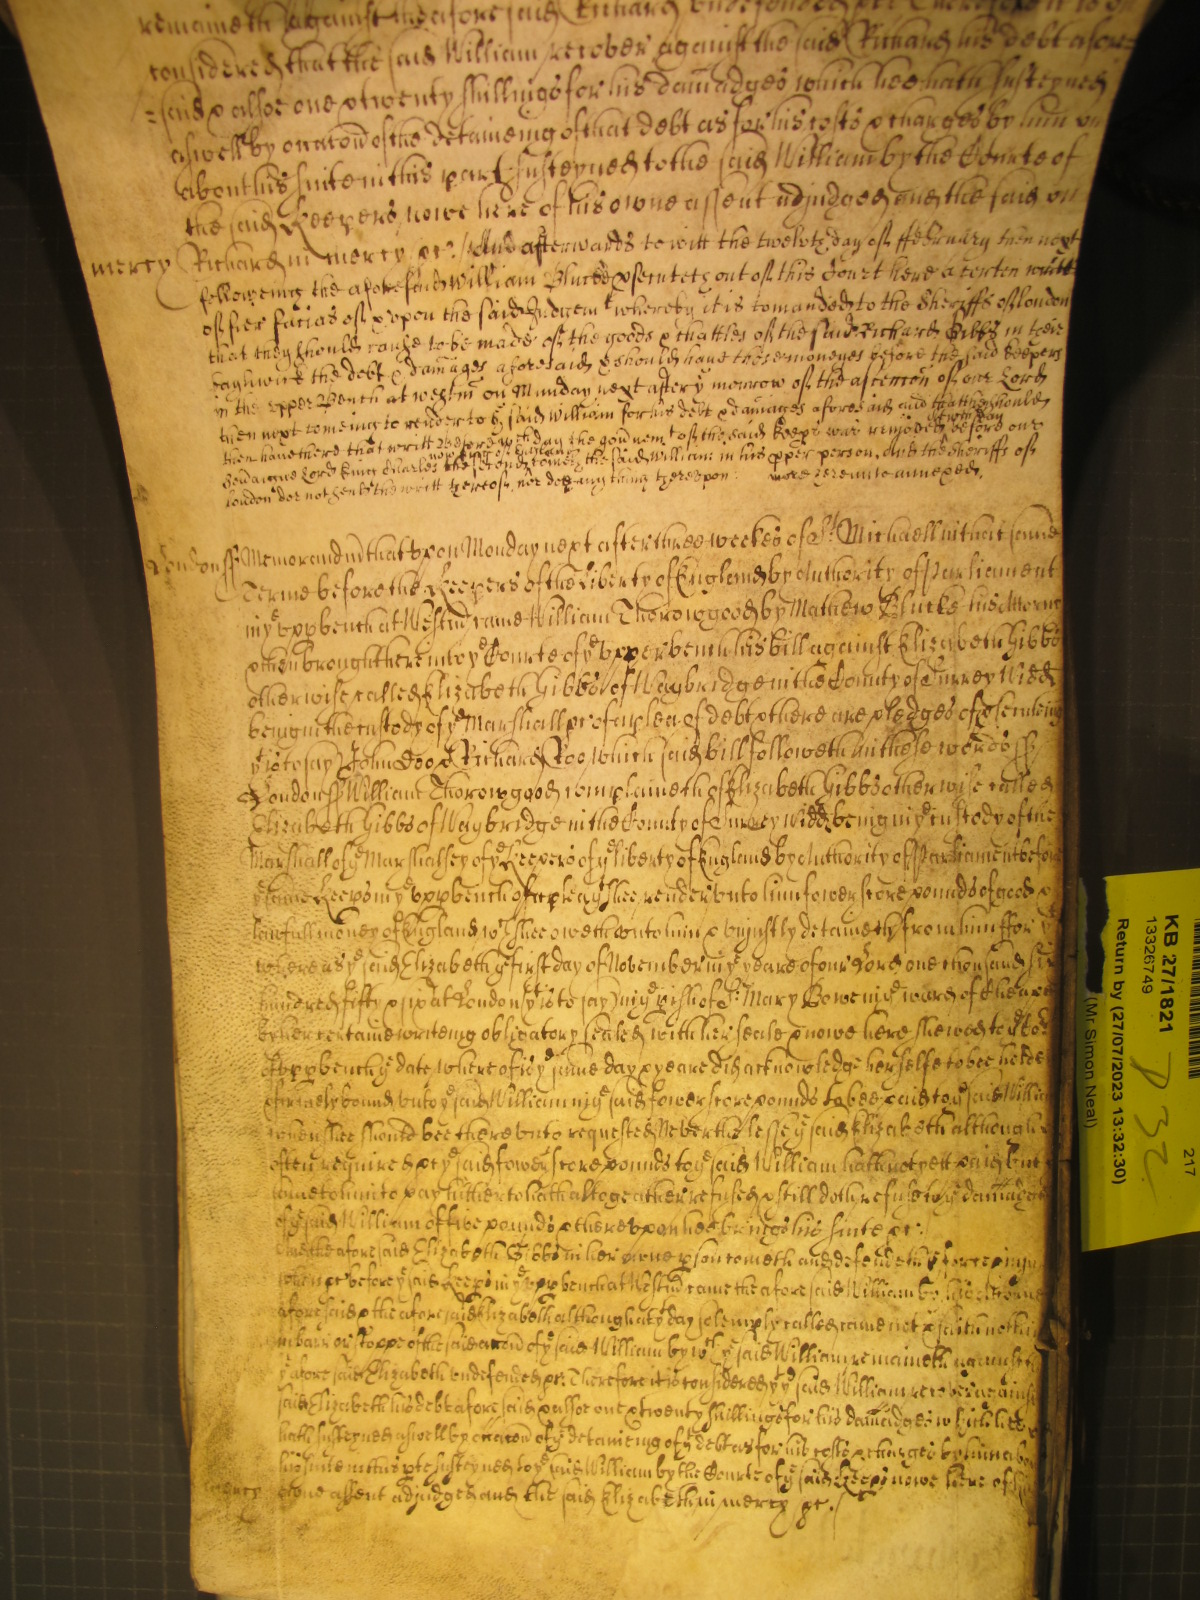 remaineth against the aforesaid Richard undefended &c Therefore it is
considered that the said William recover against the said Richard his debt afore=
=said & alsoe one & twenty shillings for his damadges which hee hath susteyned
aswell by occacon of the detaineing of that debt as for his costs & charges by him
about his suite in this part susteyned to the said William by the Courte of
the said Keepers nowe here of his owne assent adjudged and the said
mercy Richard in mercy &c. And afterwards to witt the twelvth day of ffebruary then next
followeing the aforesaid William Plucke psecuteth out of this Court here a certen writt
of fier facias of & upon the said Judgemt whereby it is comanded to the Sheriffs of London
that they should cause to be made of the goods & chattles of the said Richard Gibbs in their
baylywick the debt & damages aforesaid & should have these moneyes before the said Keepers
in the upper Bench at westm on Munday next after ye morrow of the ascencon of our Lord
then next comeing to render to ye said William for his debt & damages aforesaid and that they should
then have there that writt before wch day the governmt of the said Keeps was removed before our
Soveraigne Lord King Charles the second cometh the said William in his pper person. And the Sheriffs of
now King of England
London doe not send the writt thereof, nor doe any thing thereupon
London ss Memorand that upon Monday next after three weekes of St. Michaell in that same
Terme before the Keepers of the Liberty of England by Authority of Parliament
in ye upp bench at Westm came William Thorowgood by Mathew Plucke his Attorney
& then brought here into ye Courte of ye upper bench his bill against Elizabeth Gibbs
otherwise called Elizabeth Gibbs of Waybridge in the County of Surrey Widd
being in the custody of ye Marshall &c of a plea of debt & there are pledges of psecuteing
yt is to say John Doo & Richard Roo, which said bill followeth in these words ss
London ss William Thorowgood complaineth of Elizabeth Gibbs otherwise called
Elizabeth Gibbs of Waybridge in the County of Surrey Widd being in ye custody of the
Marshall of ye Marshalsey of ye Keepers of ye liberty of England by Authority of Parliament before
ye same Keeps in ye upp bench of a plea yt shee render unto him fower score pounds of good &
lawfull money of England wch shee oweth unto him & unjustly detaineth from him ffor yt
whereas ye said Elizabeth ye first day of November in ye yeare of our Lord one thousand six
hundred fifty & six at London yt is to say in ye pish of St. Mary Bowe in ye ward of Cheape
by her certaine writeing obligatory sealed with her seale & nowe here shewed to ye Court
of upp bench ye date whereof is ye same day & yeare did acknowledge herselfe to bee held
& firmely bound unto ye said William in ye said fower score pounds to bee paid to ye said William
when shee should bee thereunto requested Neverthelesse ye said Elizabeth although
often required &c ye said fower score pounds to ye said William hath not yett paid but
same to him to pay hitherto hath altogeather refused & still doth refuse to ye damadge
of ye said William of five pounds & thereupon hee brings his suite &c.
And the aforesaid Elizabeth Gibbs in her owne pson cometh and defendeth ye force & injury
when &c before ye said Keeps in ye upp bench at Westm came the aforesaid William by his Attorney
aforesaid & the aforesaid Elizabeth although at yt day solemnly called came not & saith nothing
in barr or stoppe of the said accon of ye said William by wch ye said William remaineth against
ye aforesaid Elizabeth undefended &c Therefore it is considered yt ye said William recover against
said Elizabeth his debt aforesaid & alsoe one & twenty shillings for his damadges which hee
hath susteyned aswell by occacon of ye detaineing of ye debt as for his costs & charges by him about
his suite in this pte susteyned to ye said William by the Courte of ye said Keeps nowe here of his
mercy owne assent adjudged and the said Elizabeth in mercy &c.
217
KB 27/1821
13326749
Return by (27/07/2023 13:32:30)
(Mr Simon Neal)
P 32